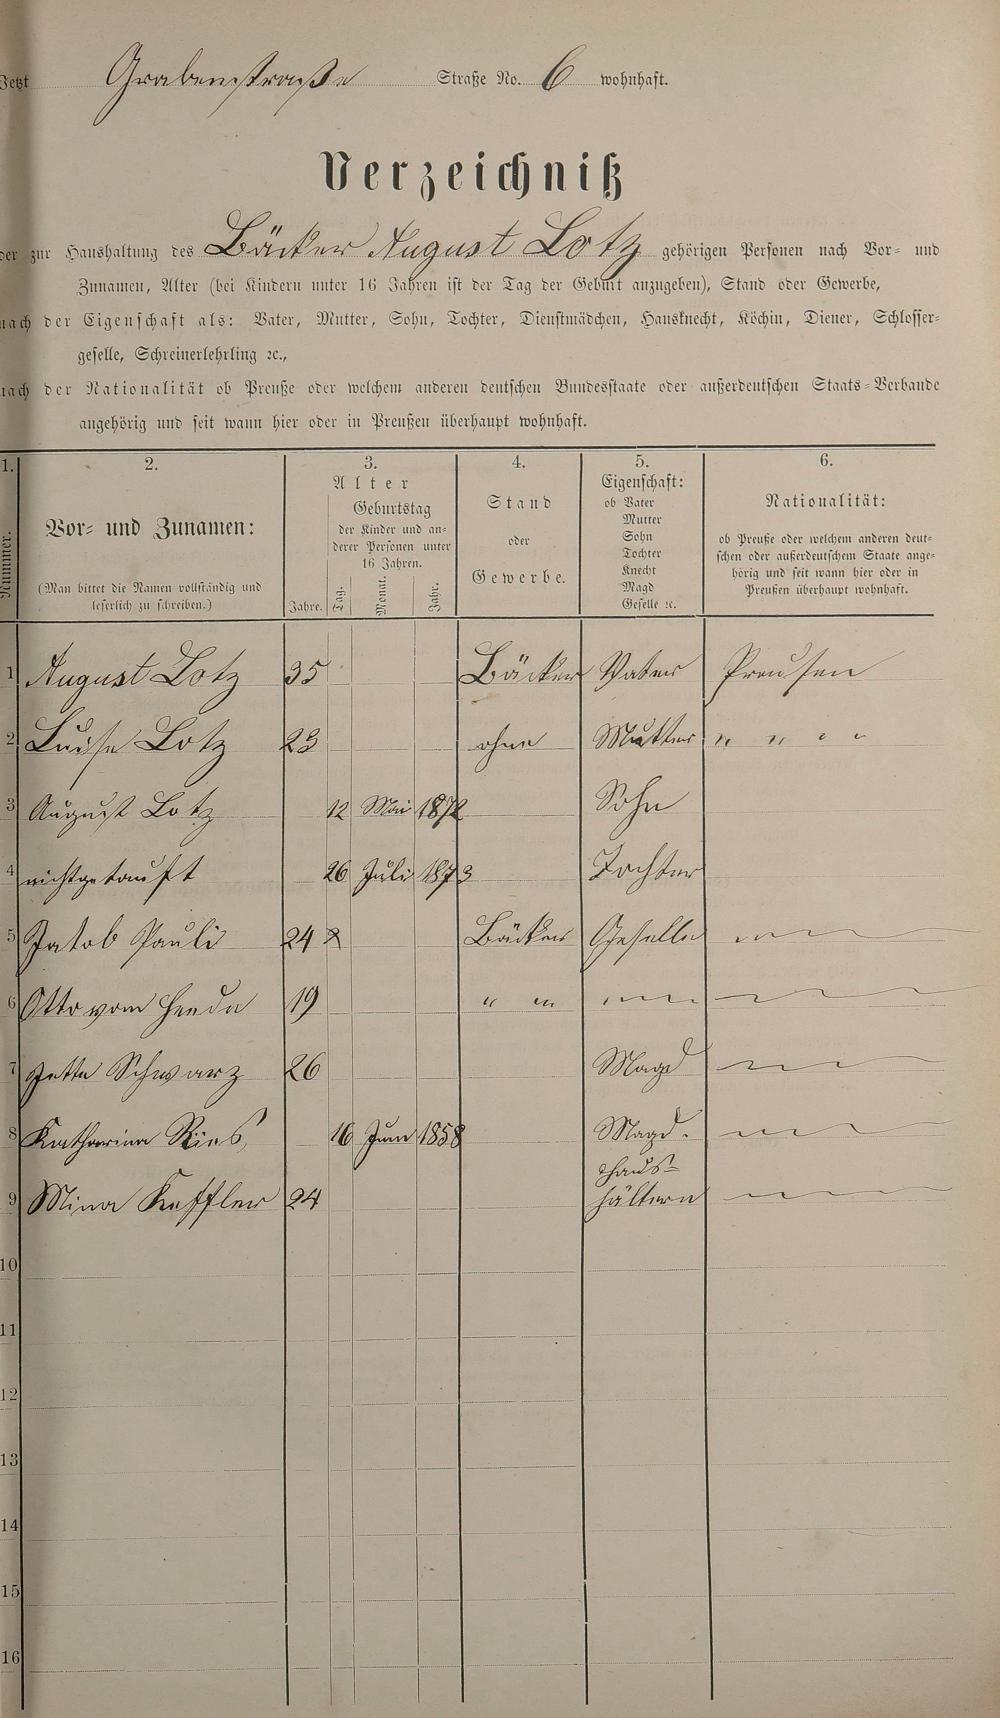 Jetzt Grabenstraße Straße No. 6 wohnhaft.
Verzeichniß
der zur Haushaltung des Bäcker August Lotz gehörigen Personen nach Vor- und
Zunamen, Alter (bei Kindern unter 16 Jahren ist der Tag der Geburt anzugeben), Stand oder Gewerbe,
nach der Eigenschaft als: Vater, Mutter, Sohn, Tochter, Dienstmädchen, Hausknecht, Köchin, Diener, Schlosser-
geselle, Schreinerlehrling ꝛc.,
nach der Nationalität ob Preuße oder welchem anderen deutschen Bundesstaate oder außerdeutschen Staats-Verbande
angehörig und seit wann hier oder in Preußen überhaupt wohnhaft.
1. 2. 3. 4. 5. 6.
Nummer.
Vor- und Zunamen:
(Man bittet die Namen vollständig und
leserlich zu schreiben.)
Alter
Geburtstag
der Kinder und an-
derer Personen unter
16 Jahren.
Jahre. Tag. Monat. Jahr.
Stand
oder
Gewerbe.
Eigenschaft:
ob Vater
Mutter
Sohn
Tochter
Knecht
Magd
Geselle ꝛc.
Nationalität:
ob Preuße oder welchem anderen deut-
schen oder außerdeutschem Staate ange-
hörig und seit wann hier oder in
Preußen überhaupt wohnhaft.
1 August Lotz 35 Bäcker Vater Preusen
2 Luise Lotz 23 ohne Mutter " " " "
3 August Lotz 12 Mai 1872 Sohn
4 nichtgetauft 26 Juli 1873 Tochter
5 Jakob Pauli 24 Bäcker Geselle
6 Otto vom Heede 19 " "
7 Jette Schwarz 26 Magd
8 Katharina Ries 16 Juni 1858 Magd.
9 Mina Keffler 24 Haus-
hältern
10
11
12
13
14
15
16